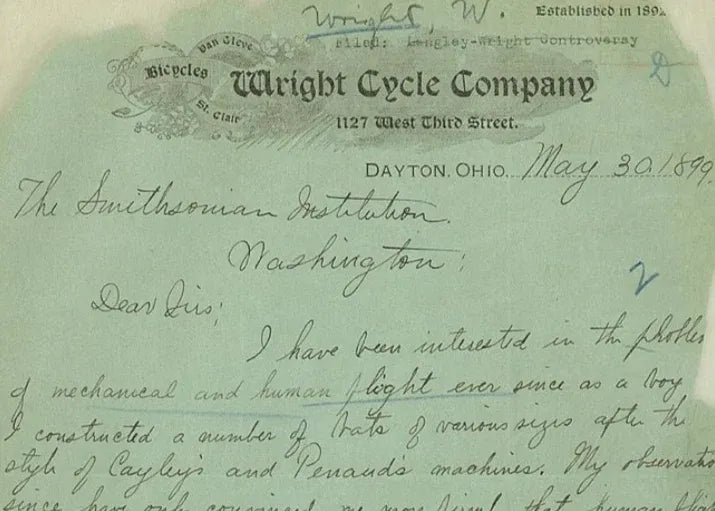 Wright, W.
Established in 1892
Filed: Langley-Wright Controversy
Van Cleve
Bicycles
St. Clair
Wright Cycle Company
1127 West Third Street.
DAYTON, OHIO. May 30, 1899.
The Smithsonian Institution.
Washington;
2
Dear Sirs;
I have been interested in the proble
of mechanical and human flight ever since as a boy
I constructed a number of bats of various sizes after the
style of Cayley's and Penaud's machines. My observatio
since have only convinced me more firml that human fligh